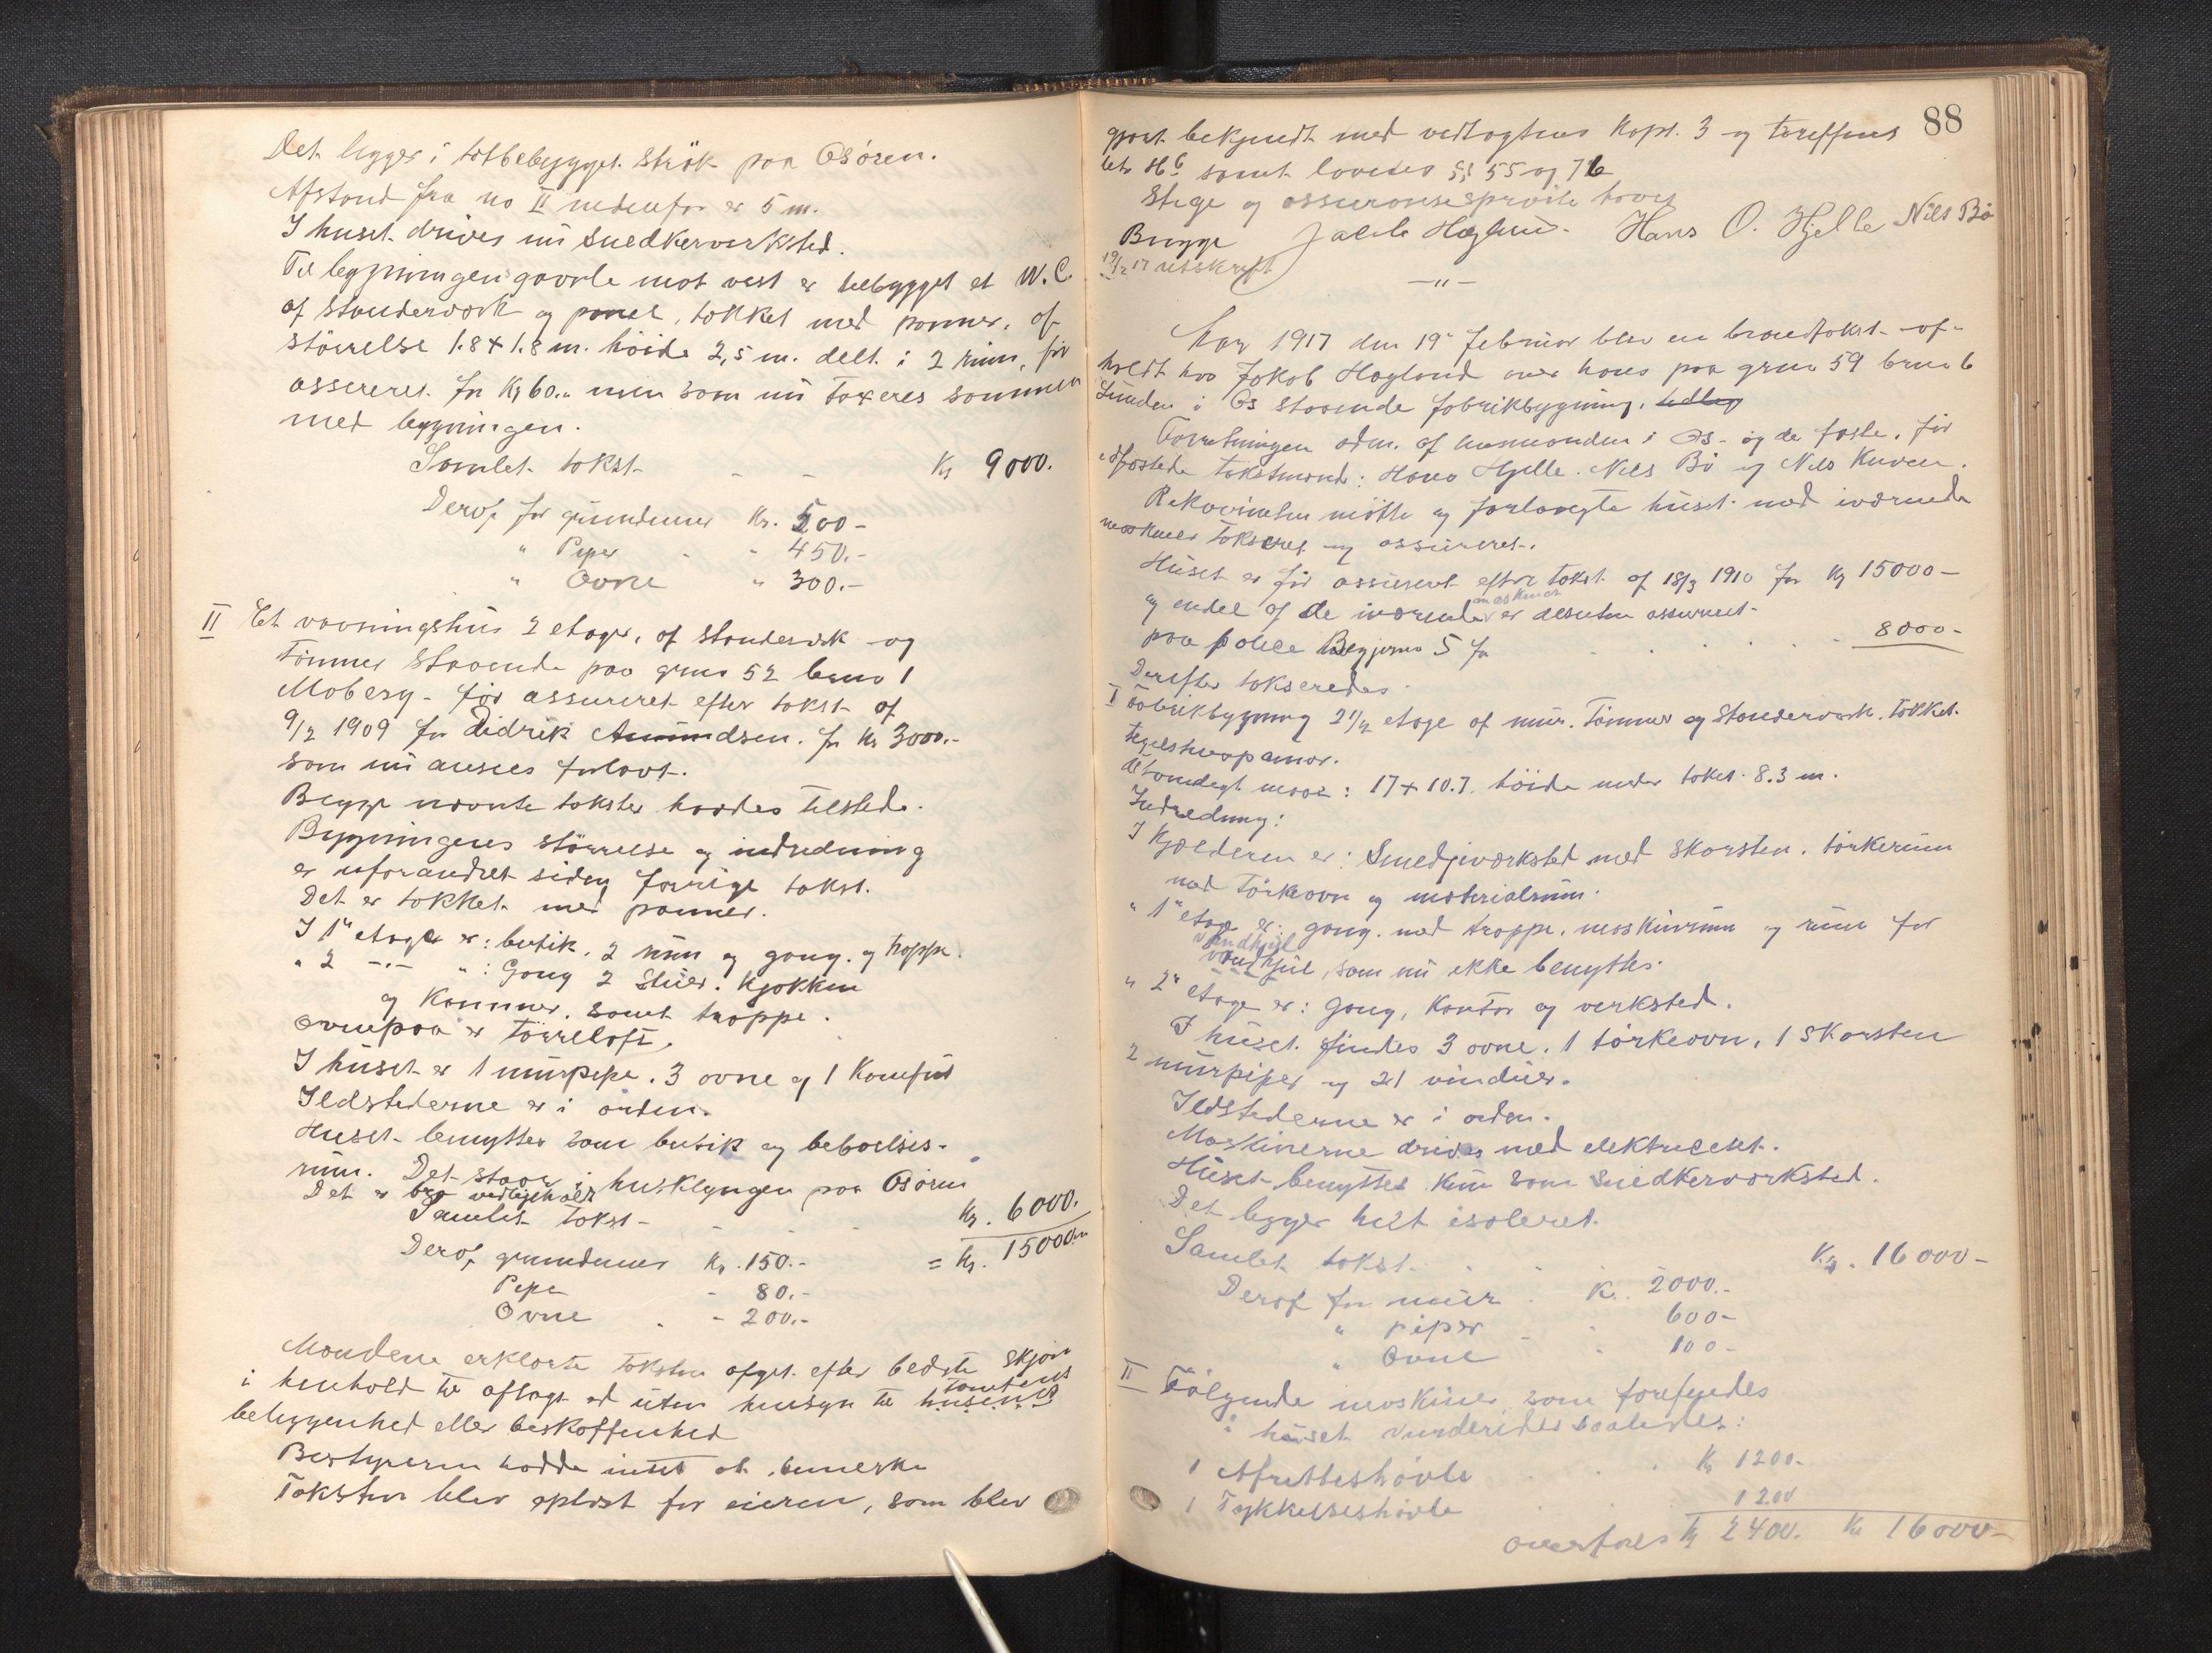 Det ligger i tætbebygget strök paa Osören.
Afstand fra no II nedenfor er 5 m.
I huset drives nu snedkerverksted.
Til bygningen gavle mot vest er tilbygget et W.C.
af standerværk og panel, tækket med panner, af
störrelse 1.8 + 1.8 m. höide 2,5 m. delt i 2 rum, för
assureret for Kr 60.- men som nu taxeres sammen
med bygningen.
Samlet takst - - Kr 9000.
Deraf for grundmur Kr. 500-
" Piper - " 450.-
" Ovne " 300.-
II Et vaaningshus 2 etager, af standerværk og
tömmer staaende paa grno 52 brno 1
Moberg - för assureret efter takst af
9/2 1909 for Didrik Amundsen for Kr 3000.-
som nu ansees for lavt.
Begge nævnte takster havdes tilstede.
Bygningens störrelse og indredning
er uforandret siden forrige takst.
Det er tækket med panner.
I 1ste etage er: butik, 2 rum og gang og trappe.
" 2 -"- " : Gang 2 stuer, kjökken
og kammer, samt trappe.
Ovenpaa er törreloft.
I huset er 1 murpipe, 3 ovne og 1 komfur
Ildstederne er i orden.
Huset benyttes som butik og beboelses-
rum. Det staar i husklyngen paa Osören
Det er bra vedligeholdt
Samlet takst - - - Kr. 6000.
Deraf grundmur Kr. 150.- = Kr. 15000.-
Pipe - 80.-
Ovne - - 200.-
Mændene erklærte taksten afgit efter bedste skjön
i henhold til aflagt ed uten hensyn til husenes tomtens
beliggenhed eller beskaffenhed
Bestyreren hadde intet at bemerke
Taksten blev oplæst for eieren, som blev
88
gjort bekjendt med vedtægtens Kapt. 3 og tariffens
litr H6 samt lovens §§ 55 og 76
Stige og assuransespröite haves
Brygge Jakob Haglund. Hans O. Hjelle Nils Bö
19/2 17 utskrift
-"-
Aar 1917 den 19 februar blev en brandtakst af-
holdt hos Jakob Haglund over hans paa grno 59 brno 6
Lunden i Os staaende fabrikbygning.
Forretningen adm. af lensmanden i Os og de faste, för
edfæstede takstmænd: Hans Hjelle, Nils Bö og Nils Kuven.
Rekvirenten mötte og forlangte huset med iværende
maskiner takseret og assureret.
Huset er för assureret efter takst af 18/3 1910 for Kr 15000-
og endel af de iværende maskiner er desuten assureret
paa police 5 for - - - 8000-
Derefter takseredes
I Fabrikbygning 2 1/2 etage af mur, tömmer og standerværk, tækket
tegelstenspanner.
Utvendigt maal: 17 + 10.7. höide under taket 8.3 m.
Indredning:
I kjælderen er: Smedjeværksted med skorsten, törkerum
med törkeovn og materialrum.
" 1" etage er: gang med trappe, maskinrum og rum for
vandhjul vandhjul, som nu ikke benyttes.
" 2" etage er: Gang, kontor og verksted.
I huset findes 3 ovne, 1 törkeovn, 1 skorsten
2 murpiper og 21 vinduer.
Ildstederne er i orden.
Maskinerne drives med elektricitet.
Huset benyttes kun som snedkerværksted.
Det ligger helt isoleret.
Samlet takst. - - - Kr. 16000-
Deraf for mur - Kr. 2000.-
" piper - - 600-
" Ovne - 100-
II Følgende maskiner som forefindes
i huset vurderedes saaledes:
1 Afrettehövle - - - Kr 1200.-
1 Tykkelseshövle - - 1200
overføres Kr 2400. Kr 16000-